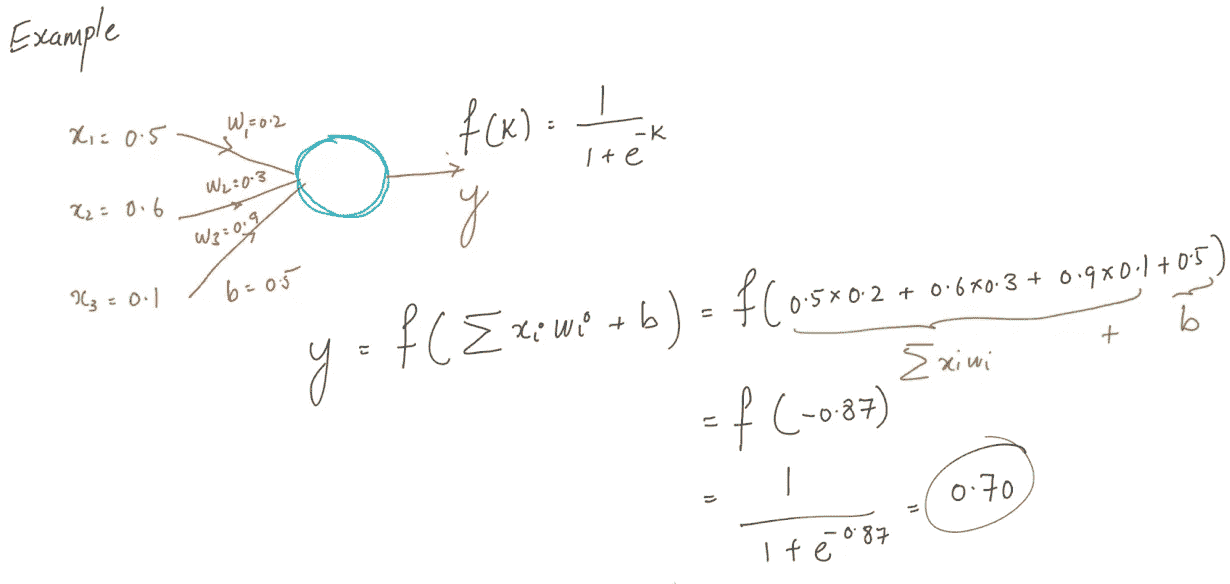 Example
x₁ = 0.5
w₁=0.2
x₂ = 0.6
w₂=0.3
w₃=0.9
x₃ = 0.1
b=0.5
f(K) = 1 / 1+e^-K
y
y = f(∑ xᵢ wᵢ + b) = f(0.5×0.2 + 0.6×0.3 + 0.9×0.1 + 0.5)
∑ xᵢwᵢ + b
= f(-0.87)
= 1 / 1+e^-0.87 = 0.70